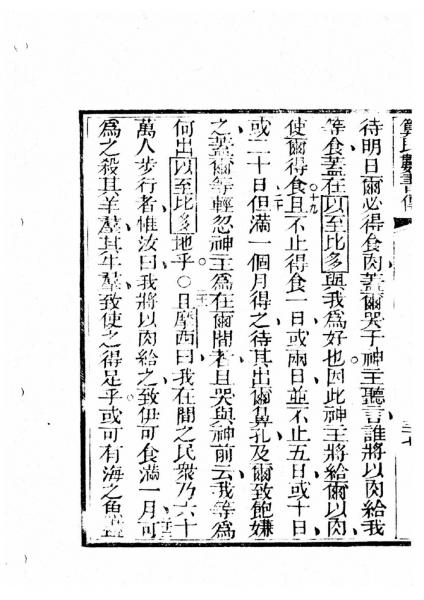 待明日爾必得食肉蓋爾哭于神主聽言誰將以肉給我
等食蓋在以至比多與我爲好也因此神主將給爾以肉
使爾得食十九且不止得食一日或兩日並不止五日或十日
或二十日二十但滿一個月得之待其出爾鼻孔及爾致飽嫌
之蓋爾等輕忽神主爲在爾間者且哭與神前云我等爲
何出以至比多地乎○二一且摩西曰我在間之民衆乃六十
萬人步行者惟汝曰我將以肉給之致伊可食滿一月二二可
爲之殺其羊羣其牛羣致使之得足乎或可有海之魚盡